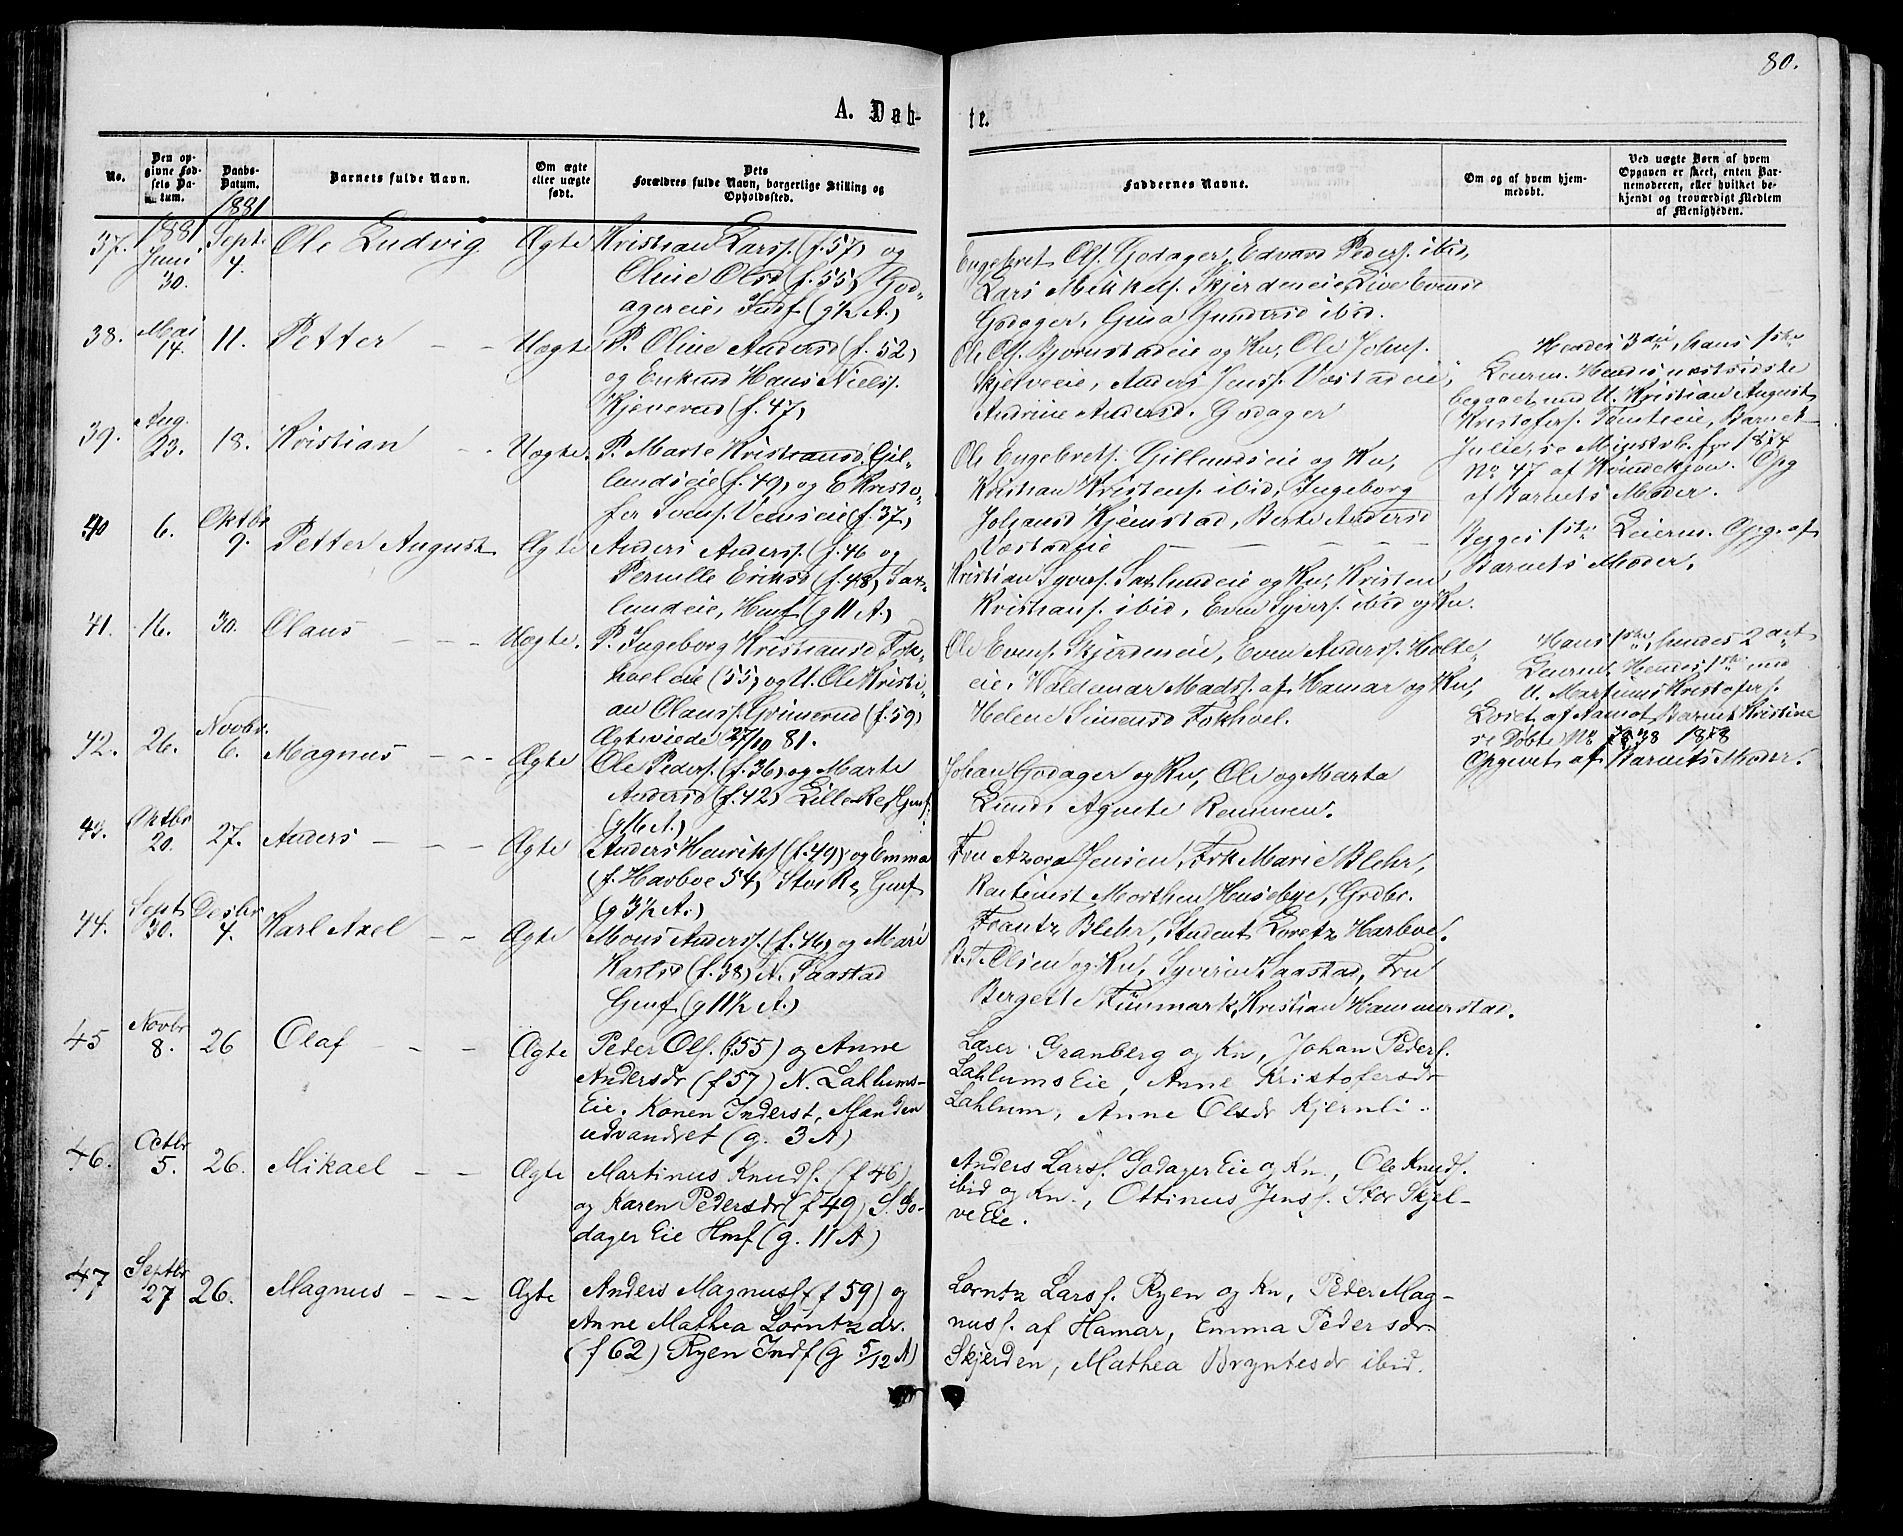 80.
A. Døb-
te.
No.
Den op-
givne Fød-
sels Da-
tum.
Daabs-
Datum.
Barnets fulde Navn.
Om ægte
eller uægte
født.
Dets
Forældres fulde Navn, borgerlige Stilling og
Opholdssted.
Faddernes Navne.
Om og af hvem hjem-
medøbt.
Ved uægte Børn af hvem
Opgaven er skeet, enten Bar-
nemoderen, eller hvilket be-
kjendt og troværdigt Medlem
af Menigheden.
1881
1881
37. Juni 30. Septr 4. Ole Ludvig Ægte Kristian Larss. (f. 57) og
Oline Olsd (f. 55) God-
agereie, Indf (g ½ A.)
Engebret Ols. Godager, Edvard Peders. ibid,
Lars Mikkels. Skjerdeneie, Live Evensd
Godager, Gina Gundersd ibid.
38. Mai 14. 11. Petter – – Uægte P. Oline Andersd (f. 52)
og Enkmd Hans Nielss.
Kjeverud (f. 47)
Ole Ols. Bjørnstadeie og Kn, Ole Johns.
Skjelveeie, Anders Jenss. Vostadeie,
Andrine Andersd. Godager
Hendes 3die, hans 1ste
Leierm. Hendes næstsidste
begaaet med U. Kristian August
Kristofers. Tomteeie, Barnet
Julie, se Minist.b. for 1874
No 47 af Hendekjøn. Opg
af Barnets Moder.
39. Aug. 23. 18. Kristian – – Uægte. P. Marte Kristiansd Gil-
lundseie (f. 49) og E Kristo-
fer Svens. Vemseie (f. 37)
Ole Engebrets. Gillundseie og Kn,
Kristian Kristens. ibid, Ingeborg
Johansd Kjemstad, Berte Andersd
Vostadeie – – – – –
Begges 1ste Leierm. Opg. af
Barnets Moder.
40 6. Oktbr 9. Petter August Ægte Anders Anderss. (f. 46 og
Pernille Eriksd (f. 48) Sax-
lundeie, Hmf (g 11 A.)
Kristian Syvers. Saxlundeie og Kn, Kristen
Kristians. ibid, Even Syvers. ibid og Kn.
41. 16. 30. Olaus – – – Uægte. P. Ingeborg Kristiansd Fok-
hol eie (55) og U. Ole Kristi-
an Olauss. Grimerud (f. 59)
Ægteviede 27/10 81.
Ole Evens. Skjerdeneie, Even Anderss. Holte-
eie, Valdemar Madss. af Hamar og Kn,
Helene Simensd Fokhol.
Hans 1ste, hendes 2det
Leierm. Hendes 1ste med
U. Martinus Kristofers.
Løset af Aamot, Barnet Kristine
se Døbte No 38 1878
Opgivet af Barnets Moder.
42. 26. Novbr. 6. Magnus – – – Ægte Ole Peders. (f. 36) og Marte
Andersd (f. 42) Lille Re, Gmf.
(g 16 A.)
Johan Godager og Kn, Ole og Marta
Lund, Agnete Rommen.
43. Oktbr 20. 27. Anders – – – Ægte Anders Henriks (f. 49) og Emma
(f. Harboe 54) Stor Re, Gmf
(g 3½ A.)
Fru Azora Jensen, Frk Marie Blehr,
Kartinist Morthen Husebye, Grdbr.
Frantz Blehr, Student Loretz Harboe.
44. Septr 30. Desbr 4. Karl Axel – – Ægte Mons Anderss. (f. 46) og Mari
Karlsd (f. 38) N. Saastad
Gmf (g 11½ A.)
B. T. Olsen og Kn, Syverin Saastad, Fru
Bergette Finnmark, Kristian Hammerstad.
45 Novbr 8. 26 Olaf – – Ægte Peder Ols. (f. 55) og Anne
Andersdr (f 57) N. Lahlums-
Eie. Konen Inderst, Manden
udvandret (g. 3 A)
Lærer Granberg og Kn, Johan Peders.
Lahlums Eie, Anne Kristofersdr
Lahlum, Anne Olsdr Kjernli.
46. Octbr 5. 26. Mikael – – Ægte Martinus Knuds. (f 46)
og Karen Pedersdr (f 49) S. Go-
dager Eie Hmf (g. 11 A)
Anders Larss. Godager Eie og Kn, Ole Knuds.
ibid og Kn., Ottinus Jenss. Stor Skjel-
ve Eie.
47 Septbr 27 26. Magnus – – – Ægte Anders Magnuss. (f 59) og
Anne Mathea Lorntzdr.
(f 62) Ryen Indf (g 5/12 A)
Lorntz Larss. Ryen og Kn, Peder Mag-
nuss. af Hamar, Emma Pedersdr
Skjerden, Mathea Bryntesdr ibid.